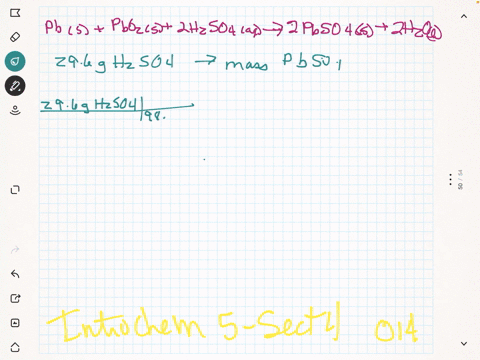 Pb(s) + PbO2(s) + 2H2SO4(aq) → 2PbSO4(s) + 2H2O(l)
29.6 g H2SO4 → mass PbSO4
29.6 g H2SO4
98.
Introchem 5-Sect 4 014